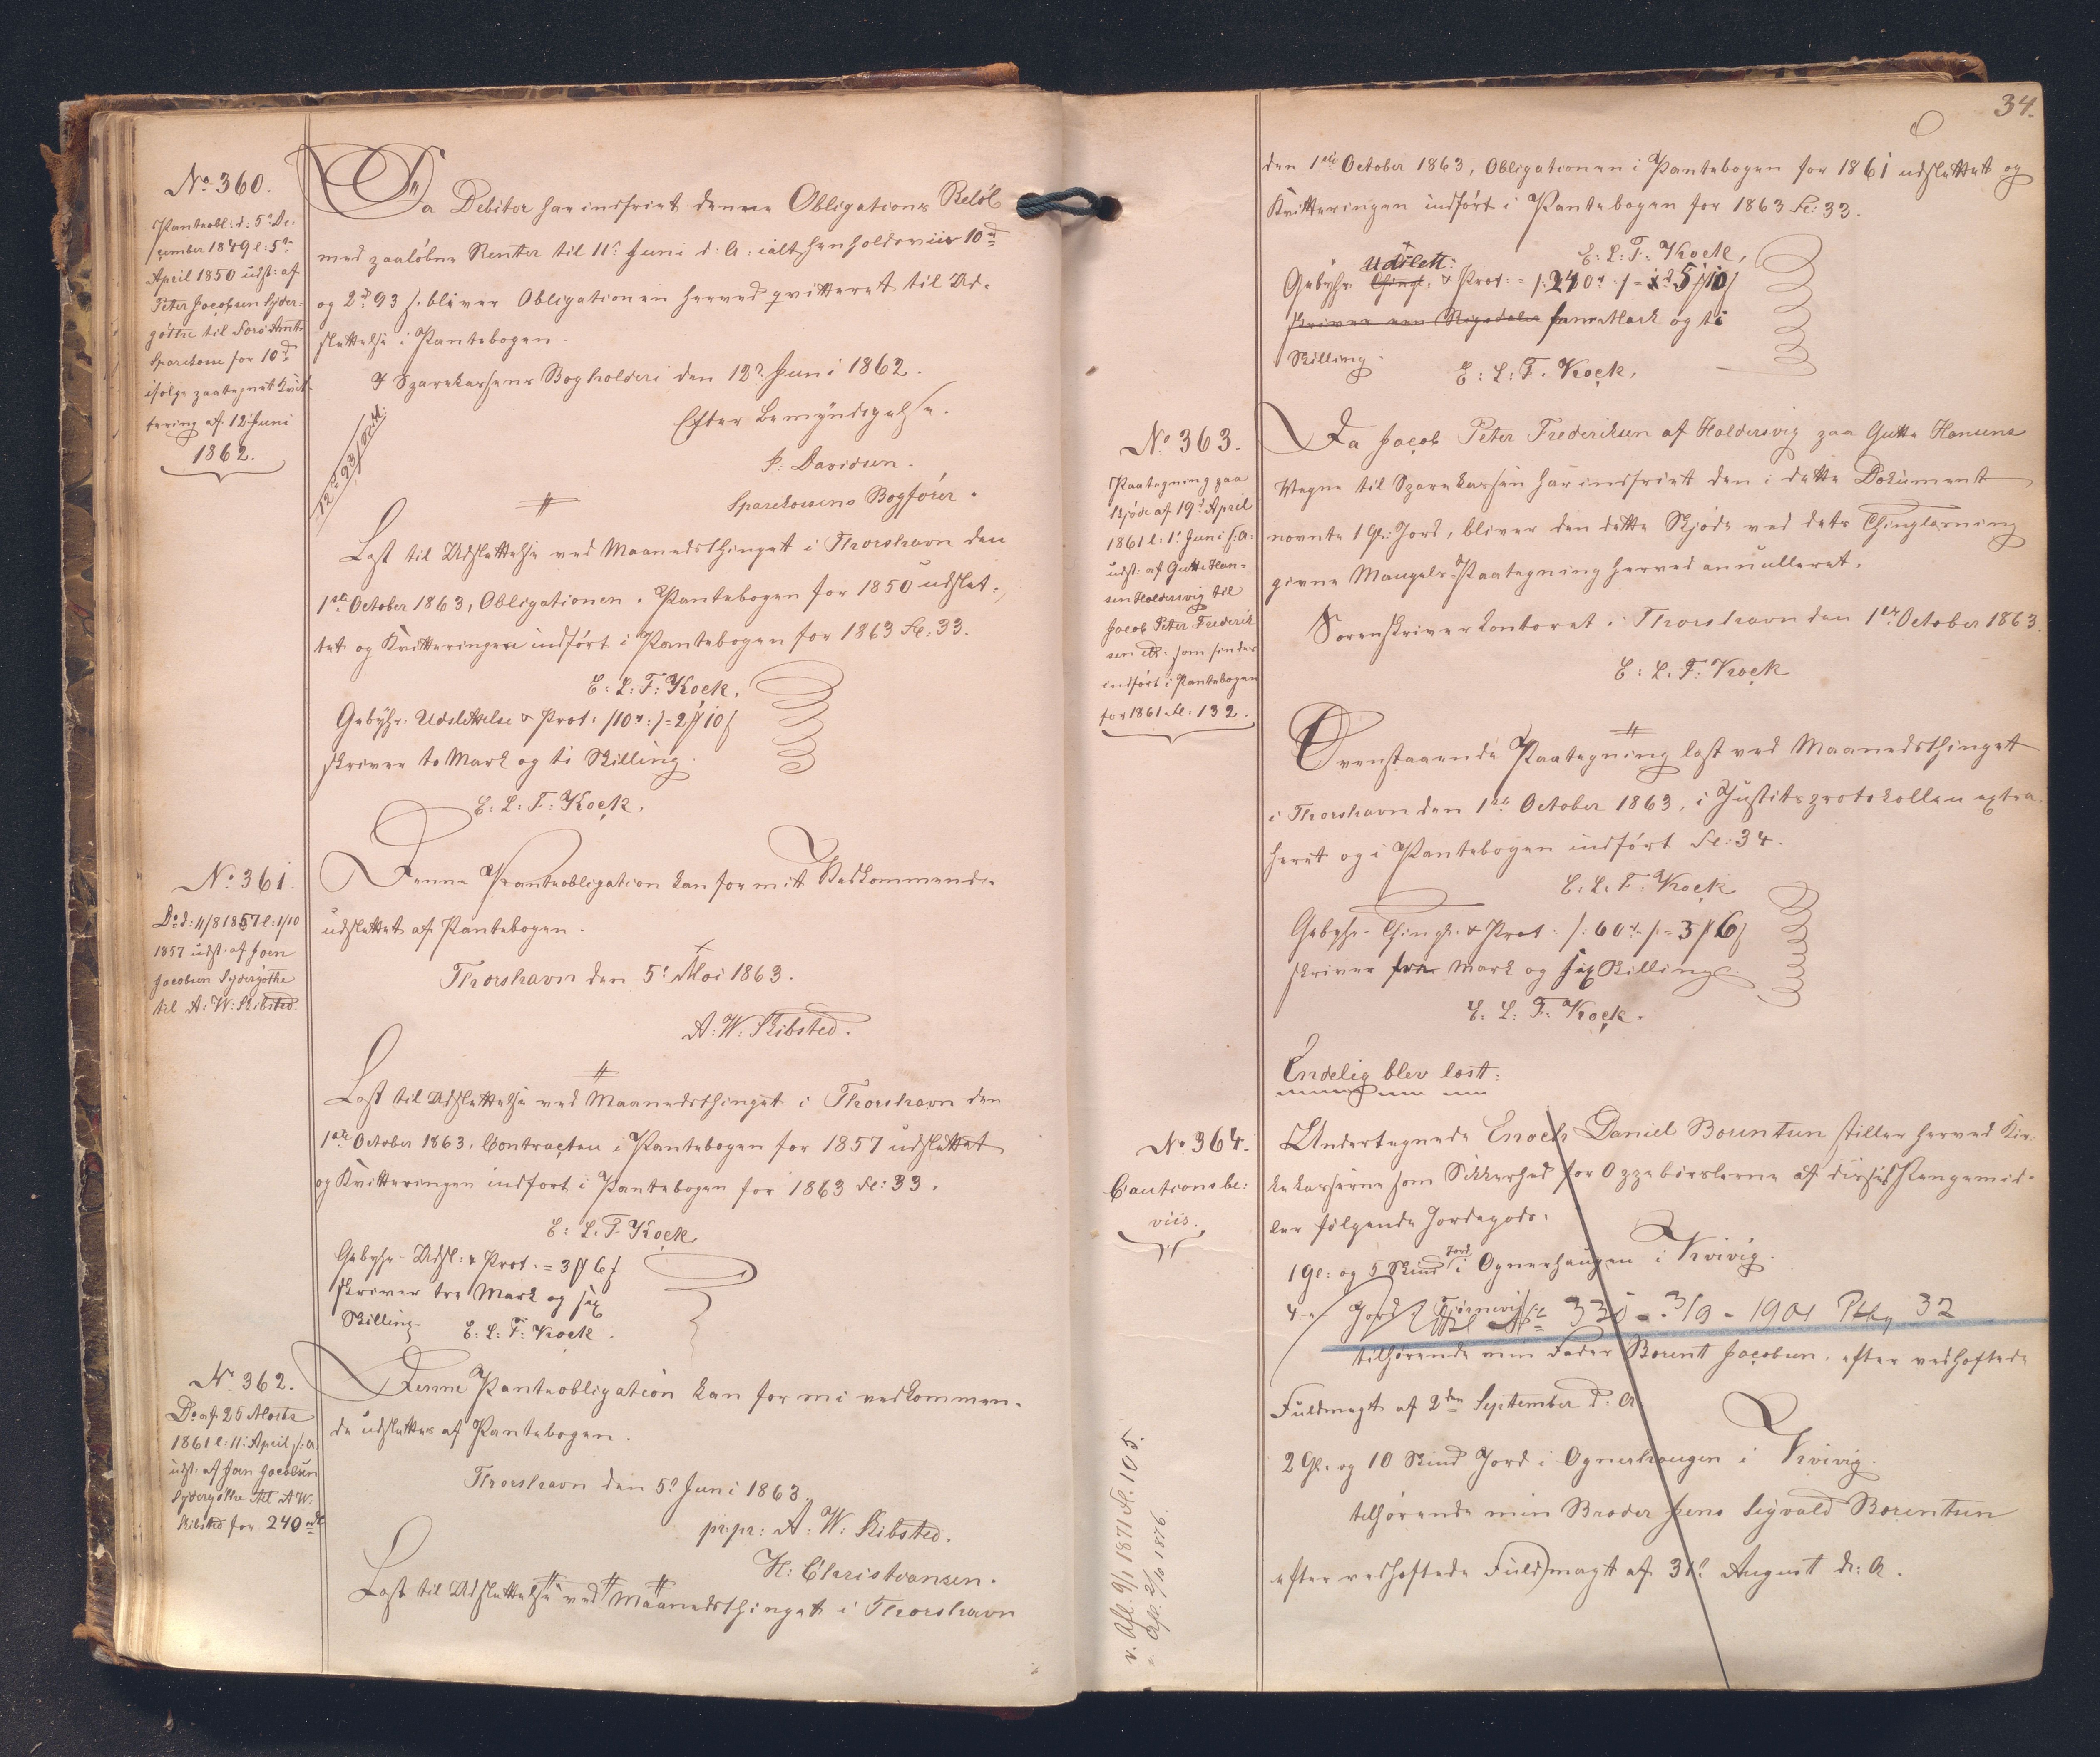 No 360.
Panteobl: d: 5te De-
cember 1849 l: 5te
April 1850 udst: af
Peter Jacobsen Syder-
gøthe til Færø Amts
Sparekasse for 10 rd
ifølge paategnet Kvit-
tering af 12 Juni
1862.
Da Debitor har indfriet denne Obligations Beløb
med paaløbne Renter til 11te Juni d: A: ialt henholdsviis 10 rd
og 2 rd 93 s, bliver Obligationen herved qvitteret til Ud-
slettelse i Pantebogen.
I Sparekassens Bogholderi den 12te Juni 1862.
Efter Bemyndigelse.
J: Davidsen.
Sparekassens Bogfører.
Læst til Udslettelse ved Maanedsthinget i Thorshavn den
1ste October 1863, Obligationen i Pantebogen for 1850 udslet-
tet og Kvitteringen indført i Pantebogen for 1863 Fol: 33.
E: L: F: Kock.
Gebyhr. Udslettelse & Prot: /10 rd:/ = 2 # 10 s
skriver to Mark og ti Skilling.
E: L: F: Kock.
No 361.
Do d: 11/8 1857 l: 1/10
1857 udst: af Joen
Jacobsen Sydergøthe
til A: W: Kibsted.
Denne Panteobligation kan for mit Vedkommende
udslettet af Pantebogen.
Thorshavn den 5te Mai 1863.
A: W: Kibsted.
Læst til Udslettelse ved Maanedsthinget i Thorshavn den
1ste October 1863, Contracten i Pantebogen for 1857 udslettet
og Kvitteringen indført i Pantebogen for 1863 Fol: 33.
E: L: F: Kock
Gebyhr- Udsl: & Prot: = 3 # 6 s
skriver tre Mark og sex
Skilling-
E: L: F: Kock.
No 362.
Do af 25 Marts
1861 l: 11 April s: a:
udst: af Joen Jacobsen
Sydergøthe til A W:
Kibsted for 240 rd
Denne Panteobligation kan for mi vedkommen-
de udslettes af Pantebogen.
Thorshavn den 5te Juni 1863.
pr.pr: A: W: Kibsted.
H: Christiansen.
Læst til Udslettelse ved Maanedsthinget i Thorshavn
34.
den 1ste October 1863, Obligationen i Pantebogen for 1861 udslettet og
Kvitteringen indført i Pantebogen for 1863 Fol: 33.
E: L: F: Kock,
Udslett:
Gebyhr. Thingl. & Prot: = /: 240 rd :/ = 5 # 10 s
skriver een Rigsdaler fem Mark og ti
Skilling.
E: L: F: Kock.
No 363.
Paategning paa
Skjøde af 19de April
1861 l: 1 Juni s: a:
udst: af Gutte Han-
sen Haldersvig til
Jacob Peter Frederik
sen som findes
indført i Pantebogen
for 1861 Fol: 132.
Da Jacob Peter Frederiksen af Haldersvig paa Gutte Hansens
Vegne til Sparekassen har indfriet den i dette Dokument
nævnte 1 Gl: Jord, bliver den dette Skjøde ved dets Thinglæsning
givne Mangels-Paategning herved annulleret.
Sorenskriverkontoret i Thorshavn den 1ste October 1863.
E: L: F: Kock
Ovenstaaende Paategning læst ved Maanedsthinget
i Thorshavn den 1ste October 1863, i Justitsprotokollen extra-
heret og i Pantebogen indført Fol: 34.
E: L: F: Kock
Gebyhr- Thingl. & Prot: /: 60 rd :/ = 3 # 6 s
skriver tre Mark og sex Skilling.
E: L: F: Kock.
Endelig blev læst:
No 364.
Cautionsbe-
viis.
Undertegnede Enoch Daniel Borentsen stiller herved Kir-
kekasserne som Sikkerhed for Oppebørslerne af disses Pengemid-
ler følgende Jordegods:
1 Gl: og 5 Skind Jord i Ognerhaugen i Kvivig.
4 - Jord i Tjørnevig
330 - 3/9 - 1901 32
tilhørende min Fader Borent Jacobsen, efter vedhæftede
Fuldmagt af 2den September d: A.
2 Gl. og 10 Skind Jord i Ognerhaugen i Kvivig.
tilhørende min Broder Jens Sigvald Borentsen
efter vedhæftede Fuldmagt af 31te August d: A.
v. Afl. 9/1 1871 Fl. 105.
v. Afl. 2/10 1876.